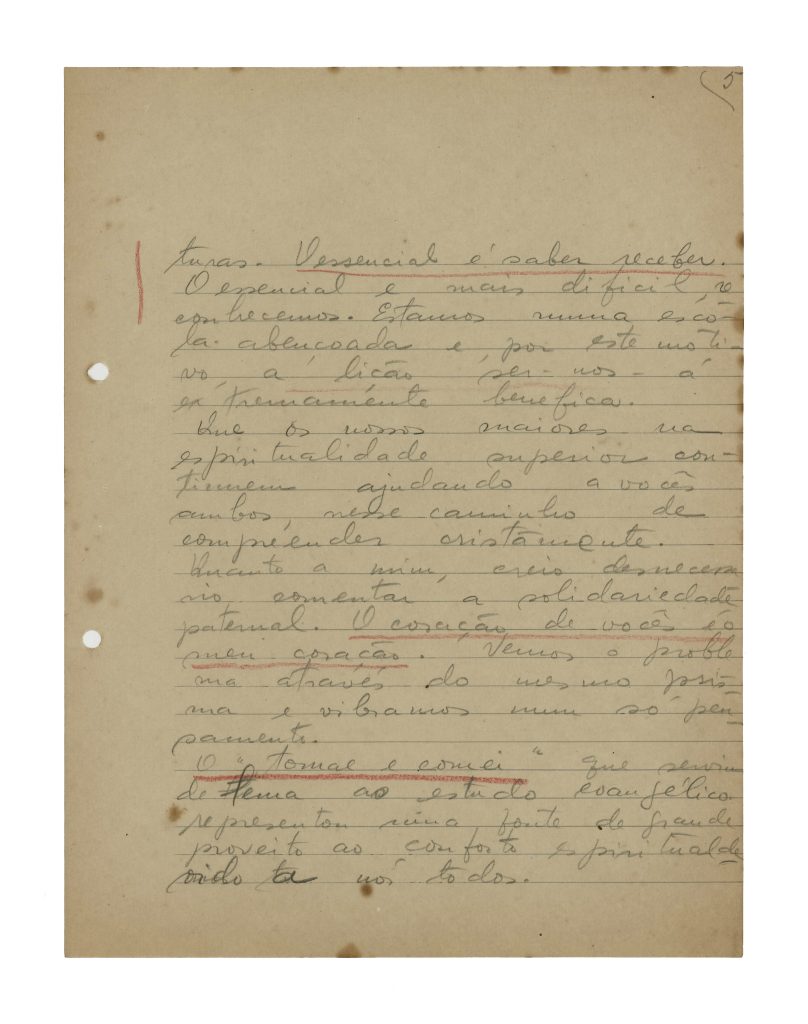 5
turas. O essencial é saber receber.
O esencial e mais dificil, re
conhecemos. Estamos numa escó-
la abençoada e, por este moti-
vo, a lição ser-nos-á
extremamente benefica.
Que os nossos maiores na
espiritualidade superior con-
tinuem ajudando a vocês
ambos, nesse caminho de
compreender cristamente.
Quanto a mim, creio desnecessa
rio comentar a solidariedade
paternal. O coração de vocês é o
meu coração. Vemos o proble
ma através do mesmo pris-
ma e vibramos num só pen-
samento.
O "tomae e comei" que serviu
de tema ao estudo evangélico
representou uma fonte de grande
proveito ao conforto espiritual de
vido a nós todos.